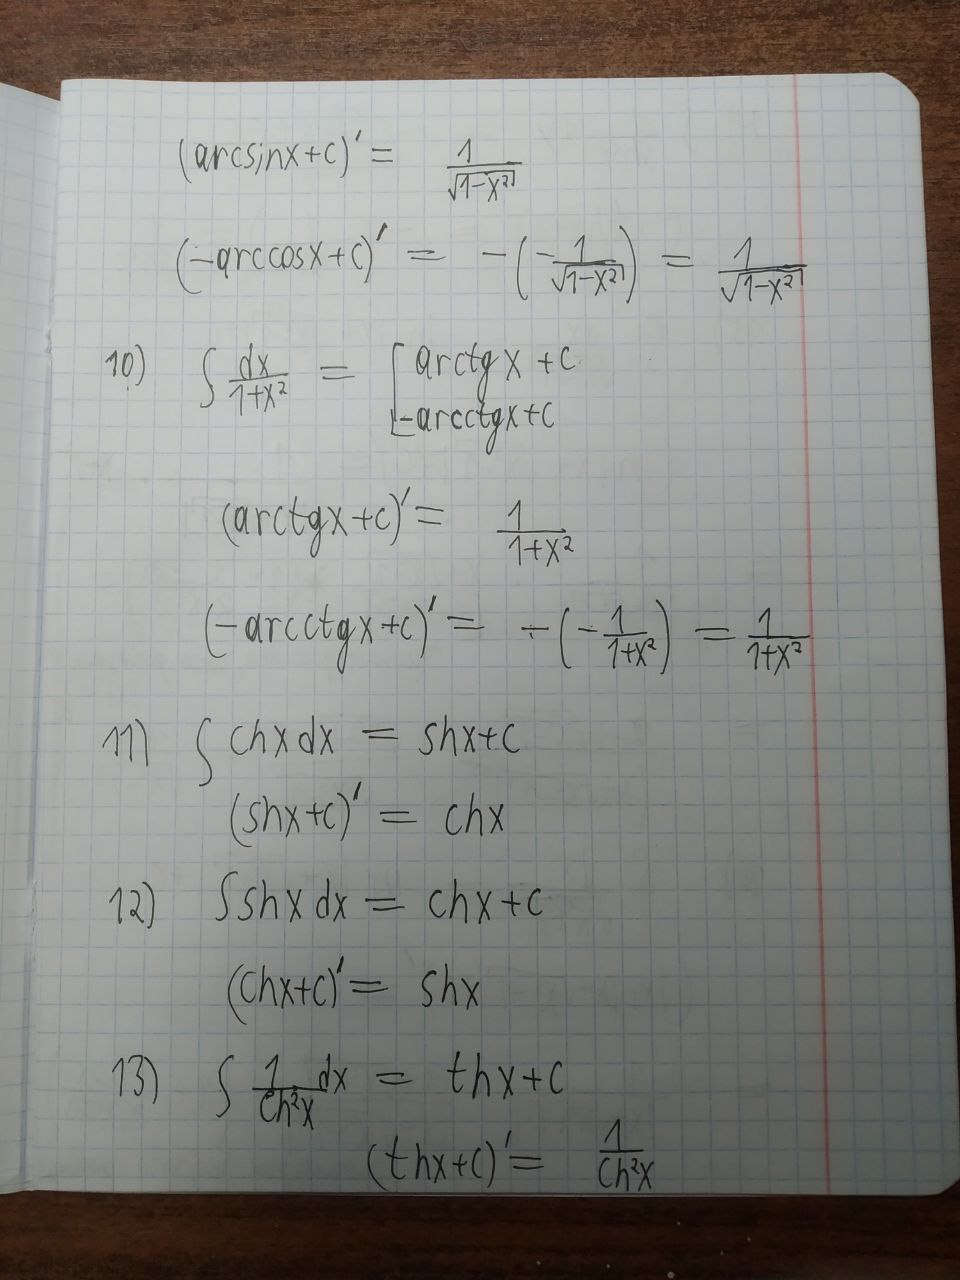 (arcsinx+c)' = 1/√(1-x²)
(-arccosx+c)' = -(-1/√(1-x²)) = 1/√(1-x²)
10) ∫ dx/(1+x²) = [arctgx+c
-arcctgx+c
(arctgx+c)' = 1/(1+x²)
(-arcctgx+c)' = -(-1/(1+x²)) = 1/(1+x²)
11) ∫ chxdx = shx+c
(shx+c)' = chx
12) ∫shxdx = chx+c
(chx+c)' = shx
13) ∫ 1/ch²x dx = thx+c
(thx+c)' = 1/ch²x